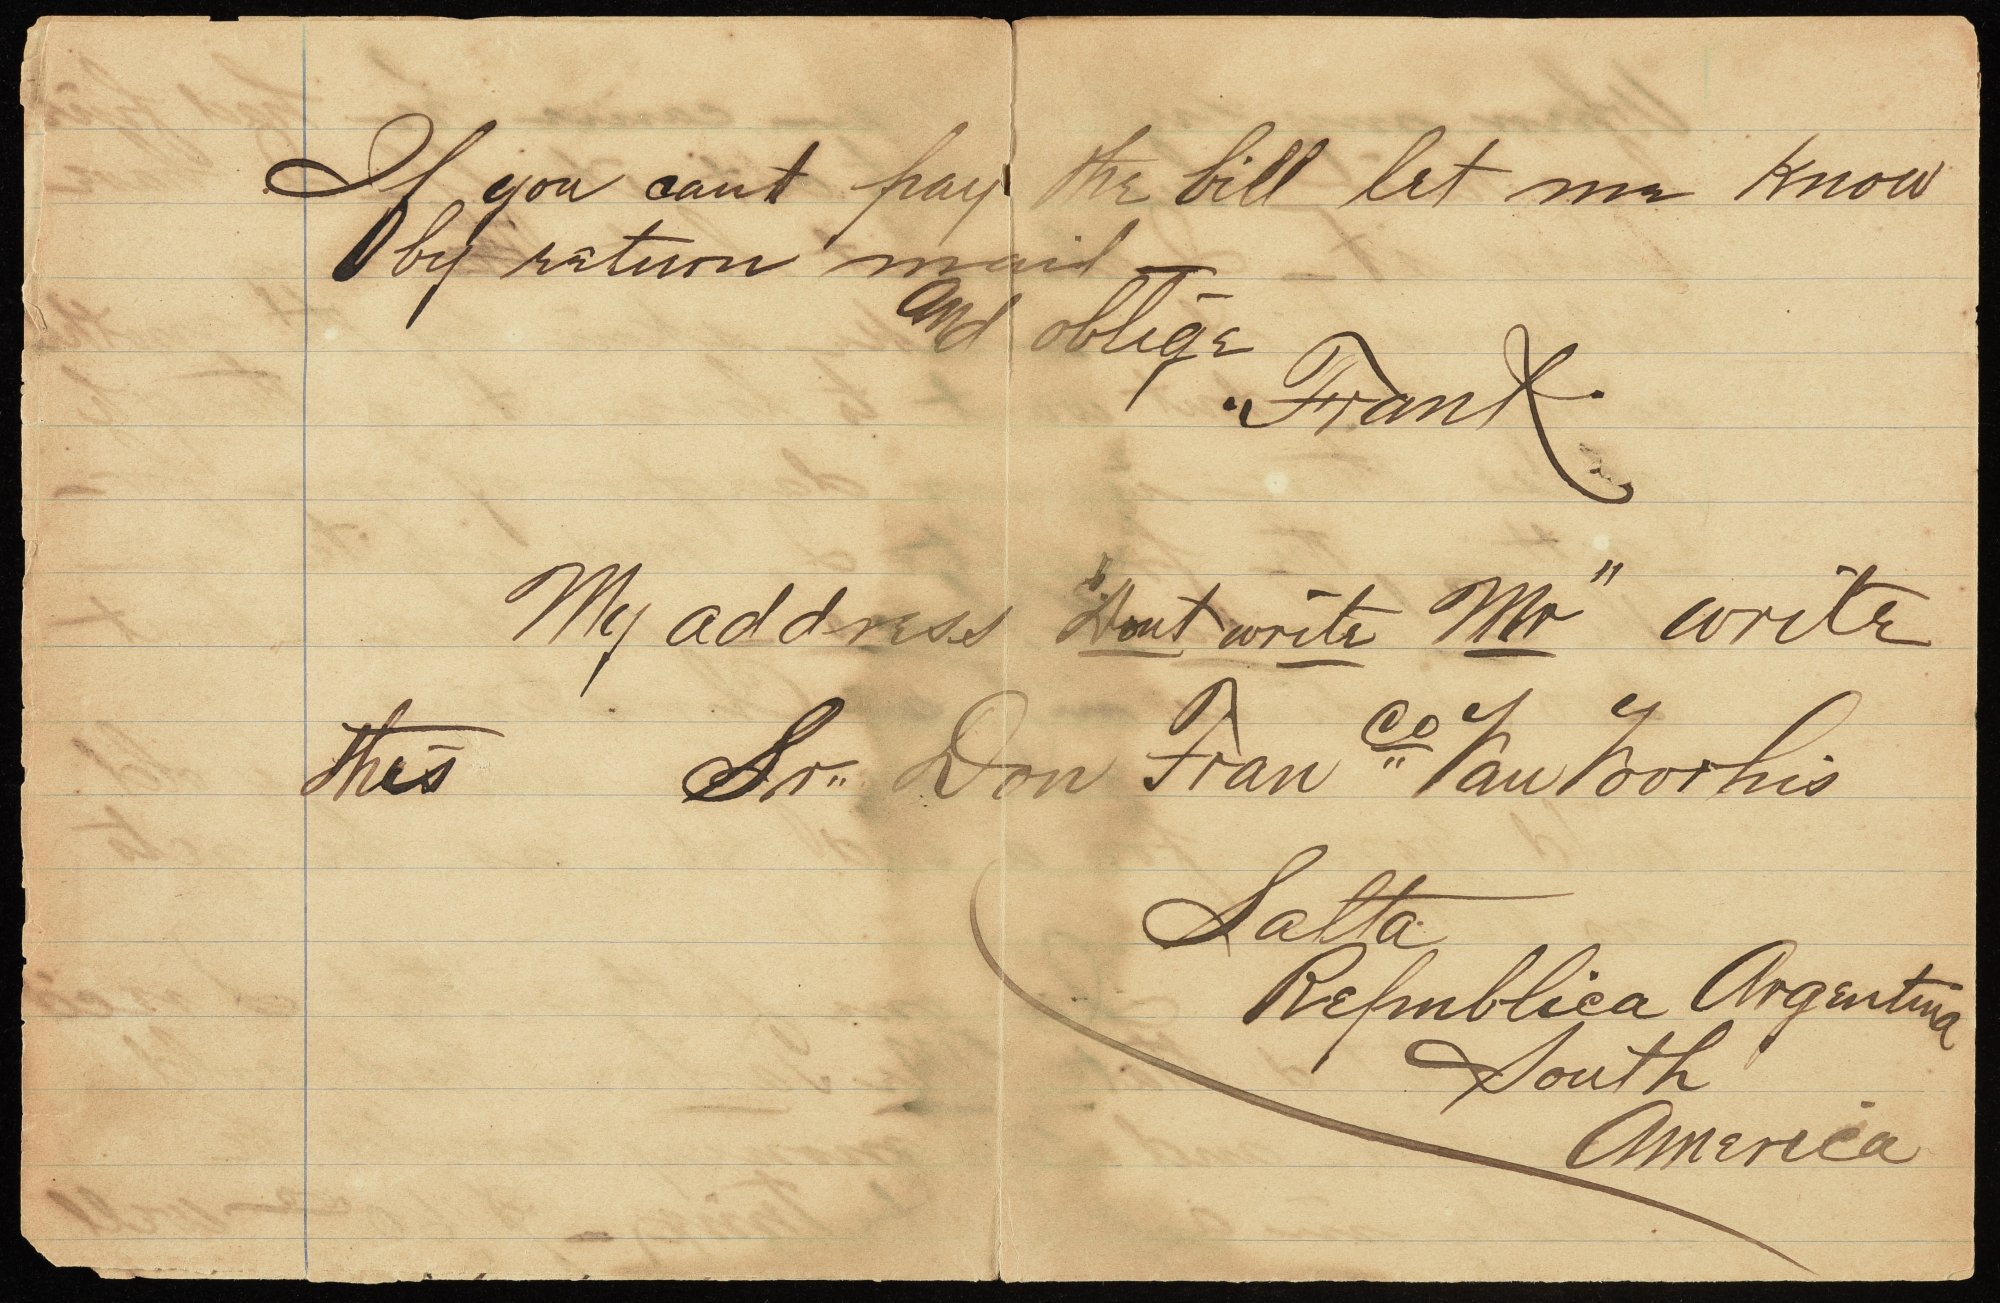 If you cant pay the bill let me know
by return mail
and oblige
"Frank
My address "Dont write Mr" write
this Sr" Don Fran co" Van Voorhis
Salta
Republica Argentina
South
America